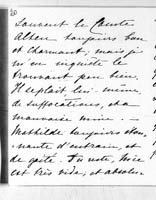 20
Laurent le Comte
Allen toujours bon
et charmant; mais je
m'en inquiète le
trouvant peu bien.
Il se plaît lui-même
de suffocations, et a
mauvaise mine. —
Mathilde toujours éton-
nante d'entrain, et
de gaîté. Du reste, Nice
est très vide, et absolu-